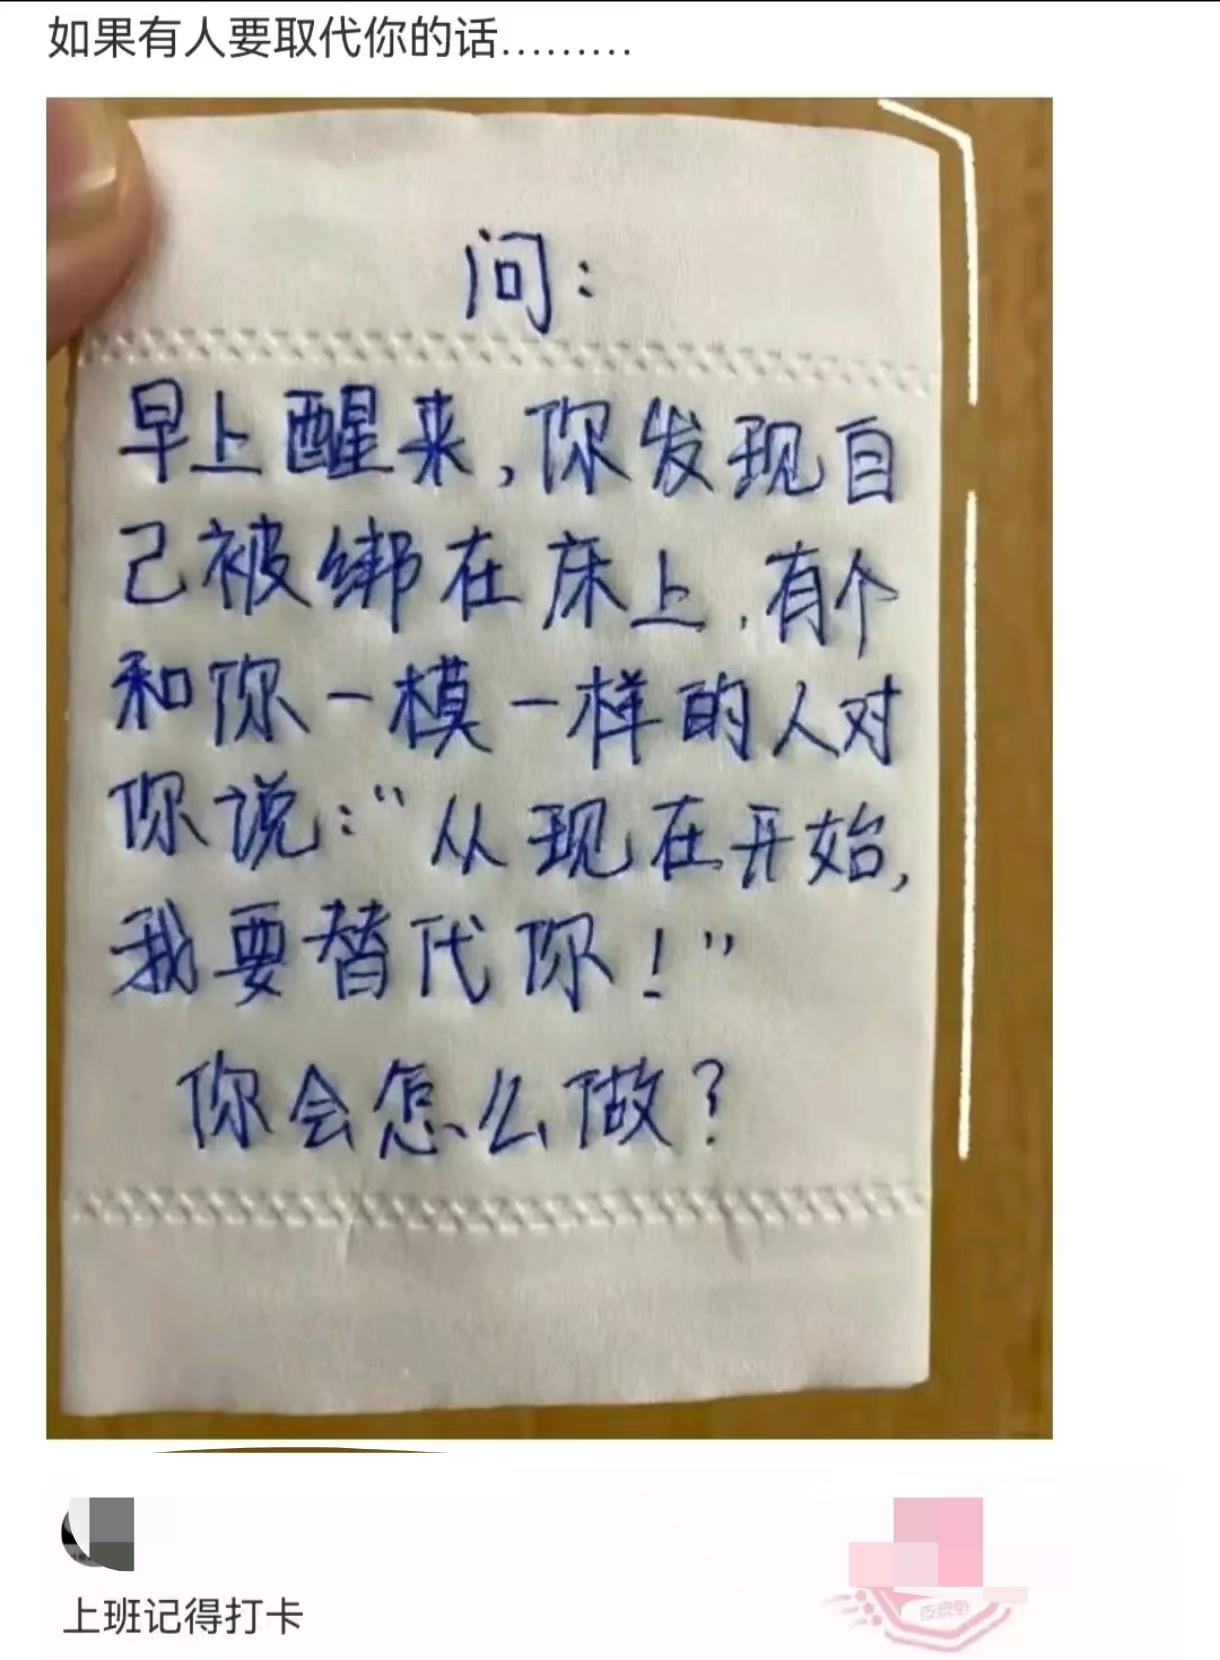 如果有人要取代你的话.........
问:
早上醒来,你发现自
己被绑在床上,有个
和你一模一样的人对
你说:“从现在开始,
我要替代你!”
你会怎么做?
上班记得打卡